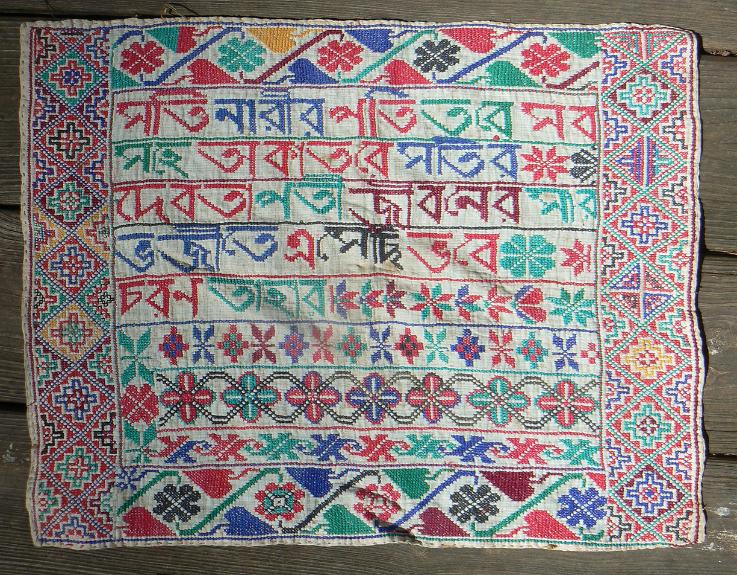 সতি নারীর পতি তরে সব
সহে অকাতরে সতির
দেবতা পতী জীবনের সার
ভজীতে এসেছি ভবে
চরন তাহার